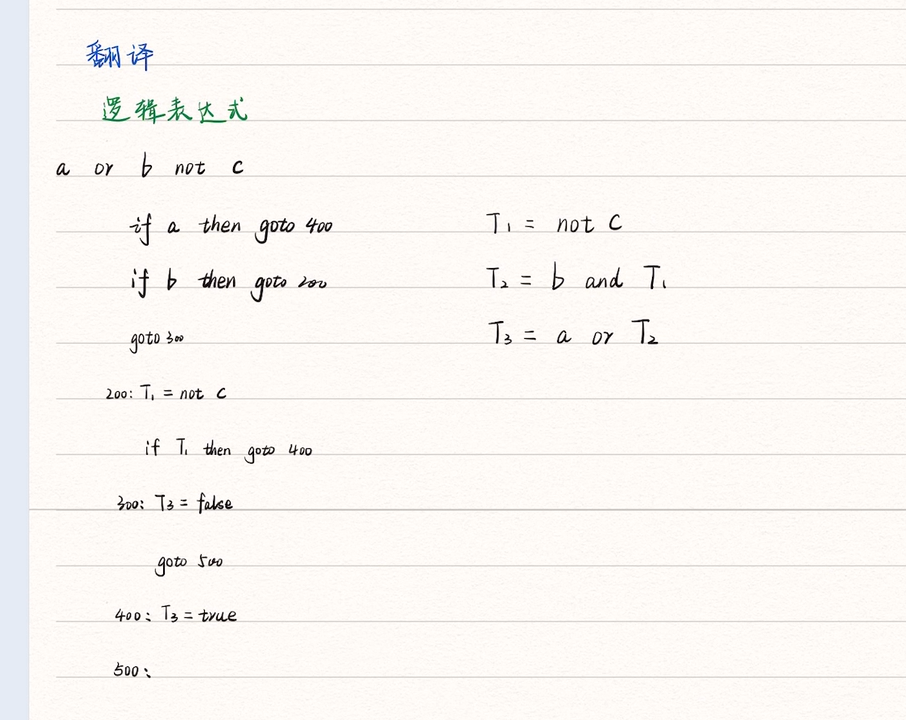 翻译
逻辑表达式
a or b not c
if a then goto 400
if b then goto 200
goto 300
200: T₁ = not c
if T₁ then goto 400
300: T₃ = false
goto 500
400: T₃ = true
500:
T₁ = not c
T₂ = b and T₁
T₃ = a or T₂